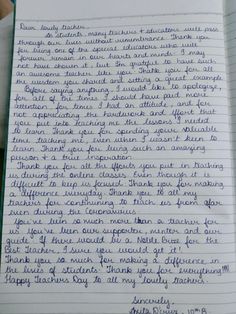 Dear lovely teacher,
As students, many teachers & educators will pass
through our lives without remembrance. Thank you
for being one of the special educators who will
forever remain in our hearts and minds. I may
not have shown it, but I'm grateful to have such
an awesome teacher like you. Thank you for all
the wisdom you shared and setting a great example
Before saying anything, I would like to apologize,
for all of the times I should have paid more
attention, for times I had an attitude, and for
not appreciating the hardwork and effort that
you put into teaching me the lessons I needed
to learn. Thank you for spending your valuable
time teaching me, even when I wasn't keen to
learn. Thank you for being such an amazing
person & a true inspiration.
Thank you for all the efforts you put in teaching
us during the online classes. Even though it is
difficult to keep us focused. Thank you for making
a difference everyday. Thank you to all my
teachers for continuing to teach us from afar
even during the Coronavirus
You've been so much more than a teacher for
us. You've been our supporter, mentor and our
guide. If there would be a Noble Prize for the
Best Teacher, I sure you would get it!
Thank you so much for making a difference in
the lives of students. Thank you for everything!!!
Happy Teachers Day to all my lovely teachers.
Sincerely,
10th B